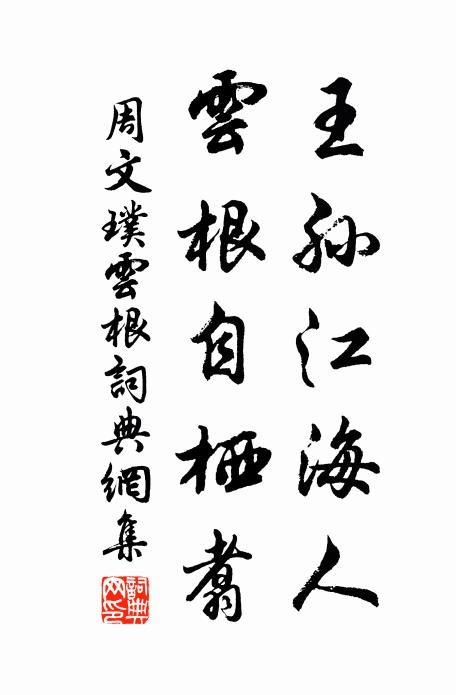 王孫江海人
雲根自栖翥
周文璞雲根詞典網集
詞典網印